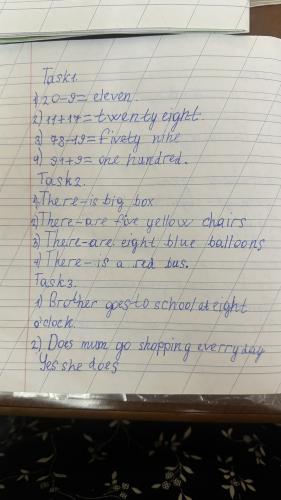 Task1.
1) 20-9= eleven.
2) 11+17= twenty eight.
3) 78-19= fivety nine
4) 91+9= one hundred.
Task2.
1) There-is big box
2) There-are five yellow chairs
3) There-are eight blue balloons
4) There-is a red bus.
Task3.
1) Brother goes to school at eight
o'clock.
2) Does mum go shopping everryday
Yes she does